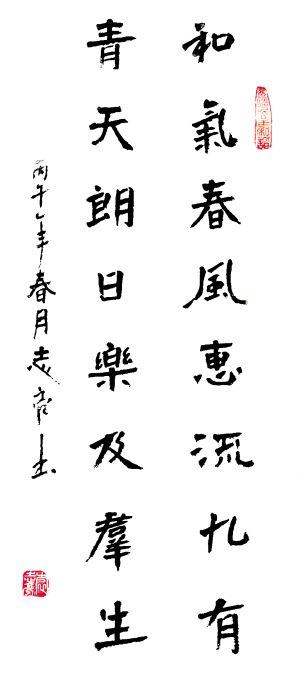 和氣春風惠流九有
青天朗日樂及羣生
丙午年春月志亮书